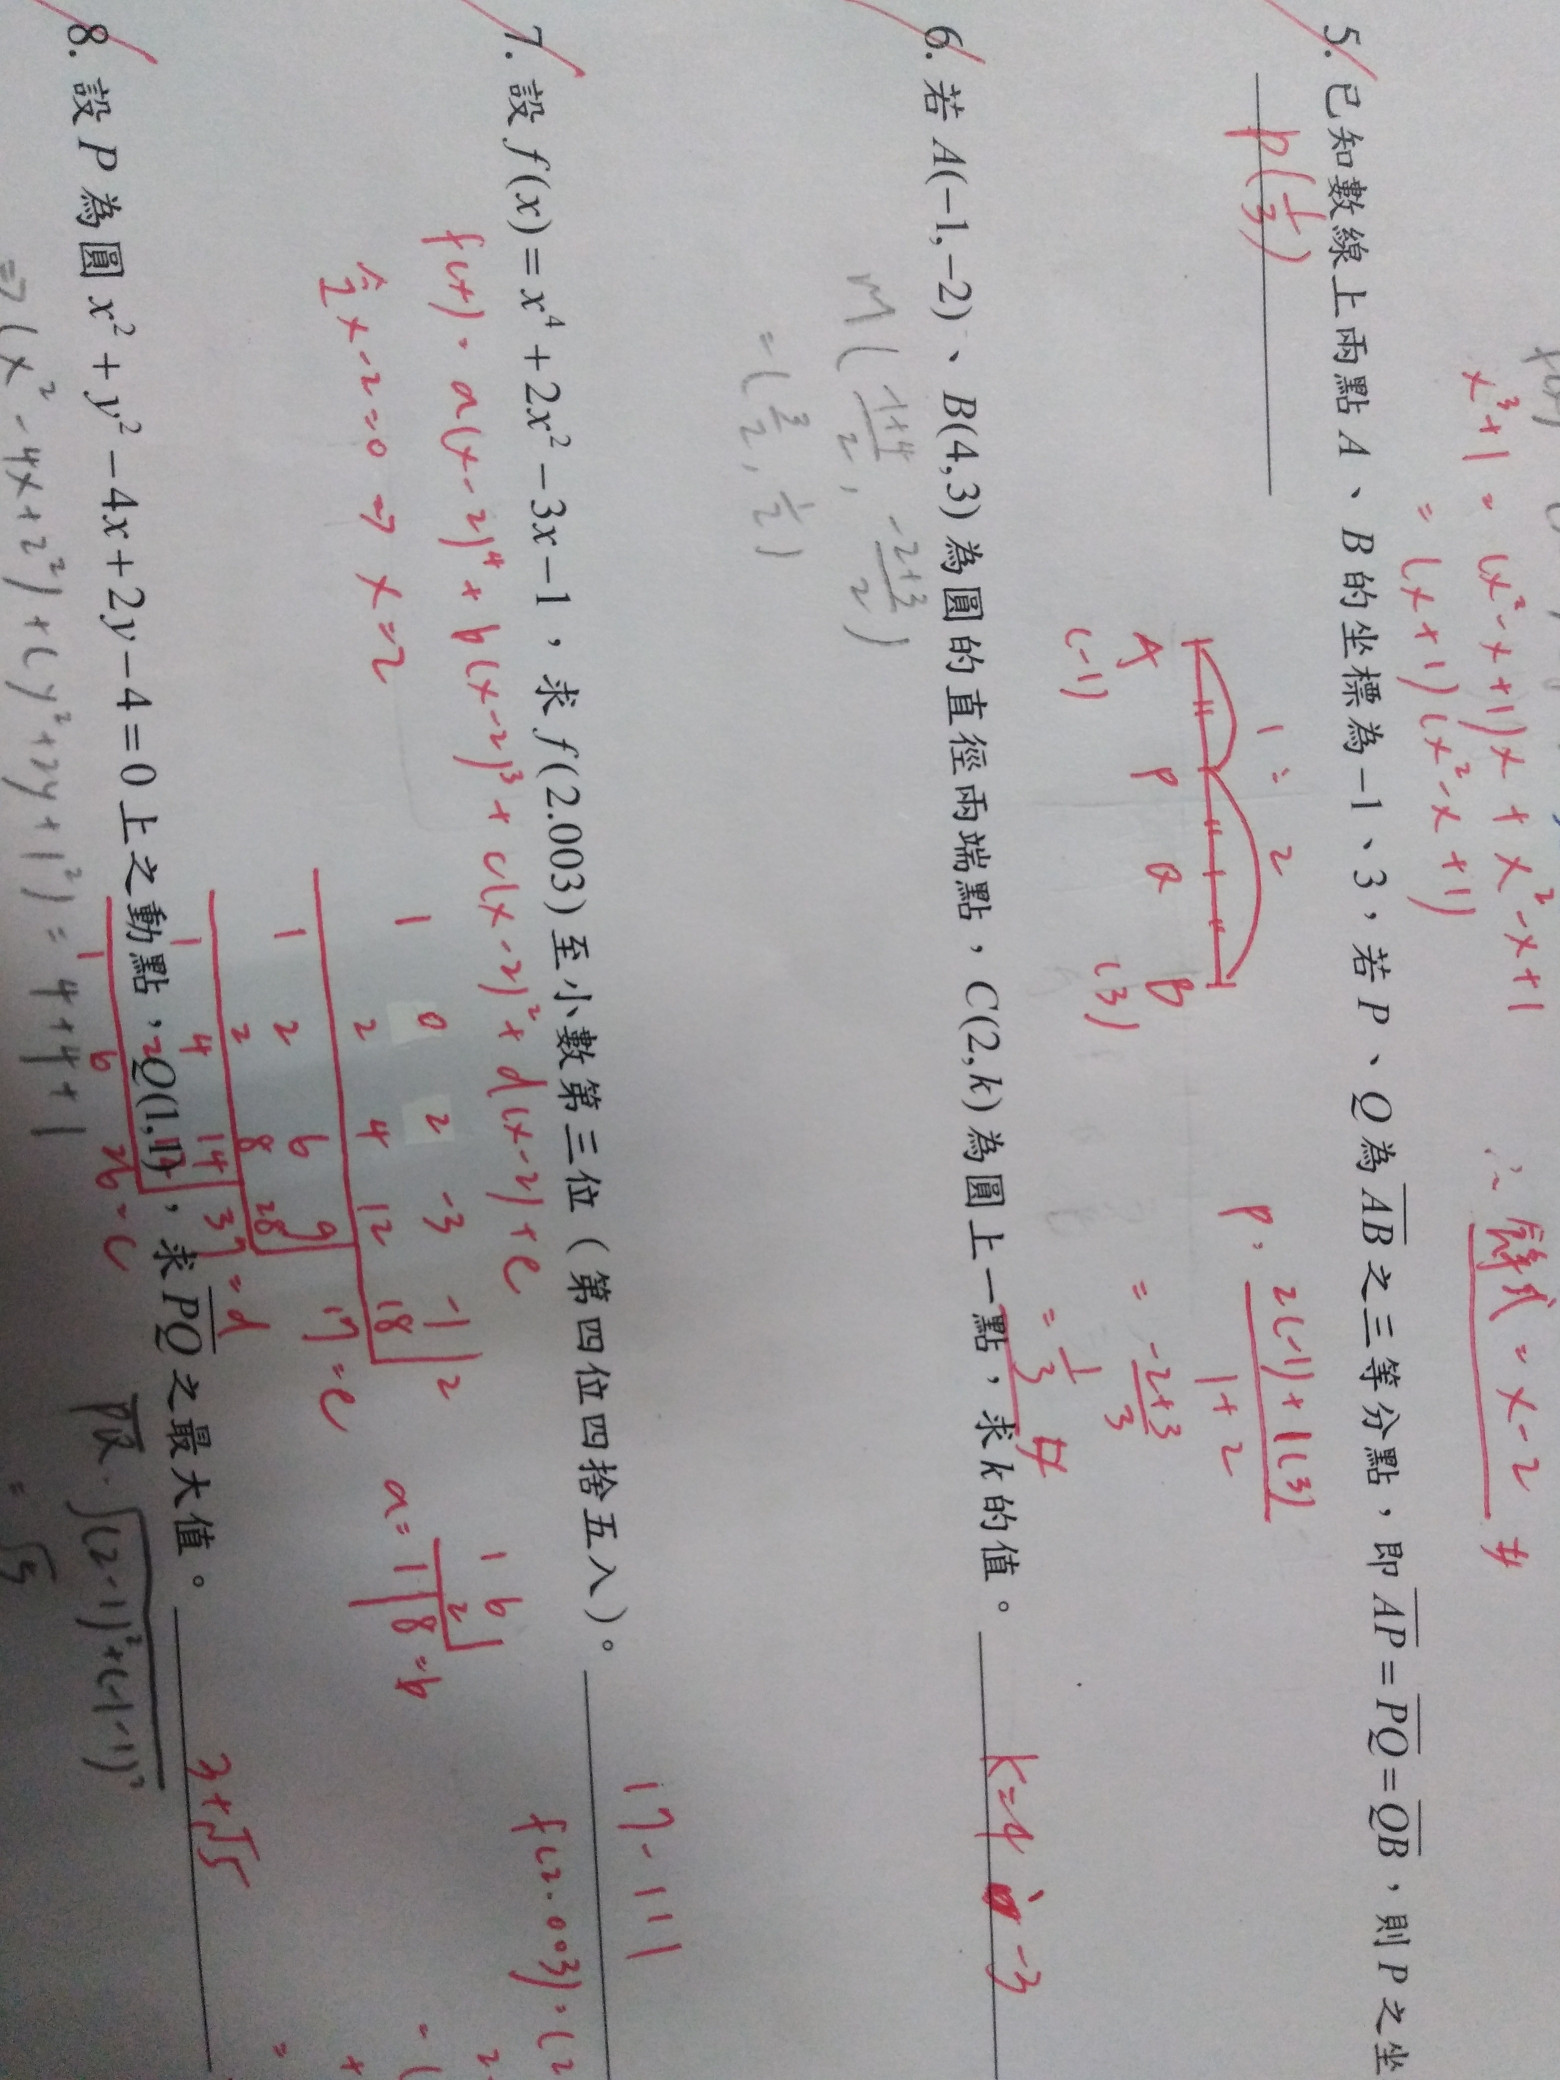 x³+1 = (x²-x+1)x + x²-x+1
= (x+1)(x²-x+1)
∴ 餘式 = x-2 #
5. 已知數線上兩點 A、B 的坐標為 -1、3,若 P、Q 為 AB 之三等分點,即 AP = PQ = QB,則 P 之坐
P(1/3)
1 : 2
A P Q B
(-1) (3)
P = 2(-1)+1(3) / 1+2
= -2+3 / 3
= 1/3 #
6. 若 A(-1,-2)、B(4,3) 為圓的直徑兩端點,C(2,k) 為圓上一點,求 k 的值。 k=4 -3
M(-1+4/2, -2+3/2)
= (3/2, 1/2)
7. 設 f(x) = x⁴ + 2x² - 3x - 1,求 f(2.003) 至小數第三位(第四位四捨五入)。 17.111
f(x) = a(x-2)⁴ + b(x-2)³ + c(x-2)² + d(x-2) + e
f(2.003) = (2
x-2=0 ⇒ x=2
1 0 2 -3 -1 | 2
2 4 12 18
1 2 6 9 17 = e
2 8 28
1 4 14 37 = d
2 12
1 6 26 = c
1 6
2
a = 1 8 = b
8. 設 P 為圓 x² + y² - 4x + 2y - 4 = 0 上之動點,Q(1,1),求 PQ 之最大值。 3+√5
⇒ (x²-4x+2²)+(y²+2y+1²) = 4+4+1
PQ = √(2-1)²+(-1-1)²
= √5